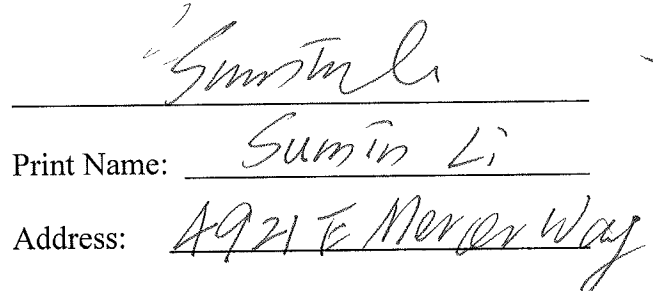 Sumin Li
Print Name: Sumin Li
Address: 4921 E Mercer Way